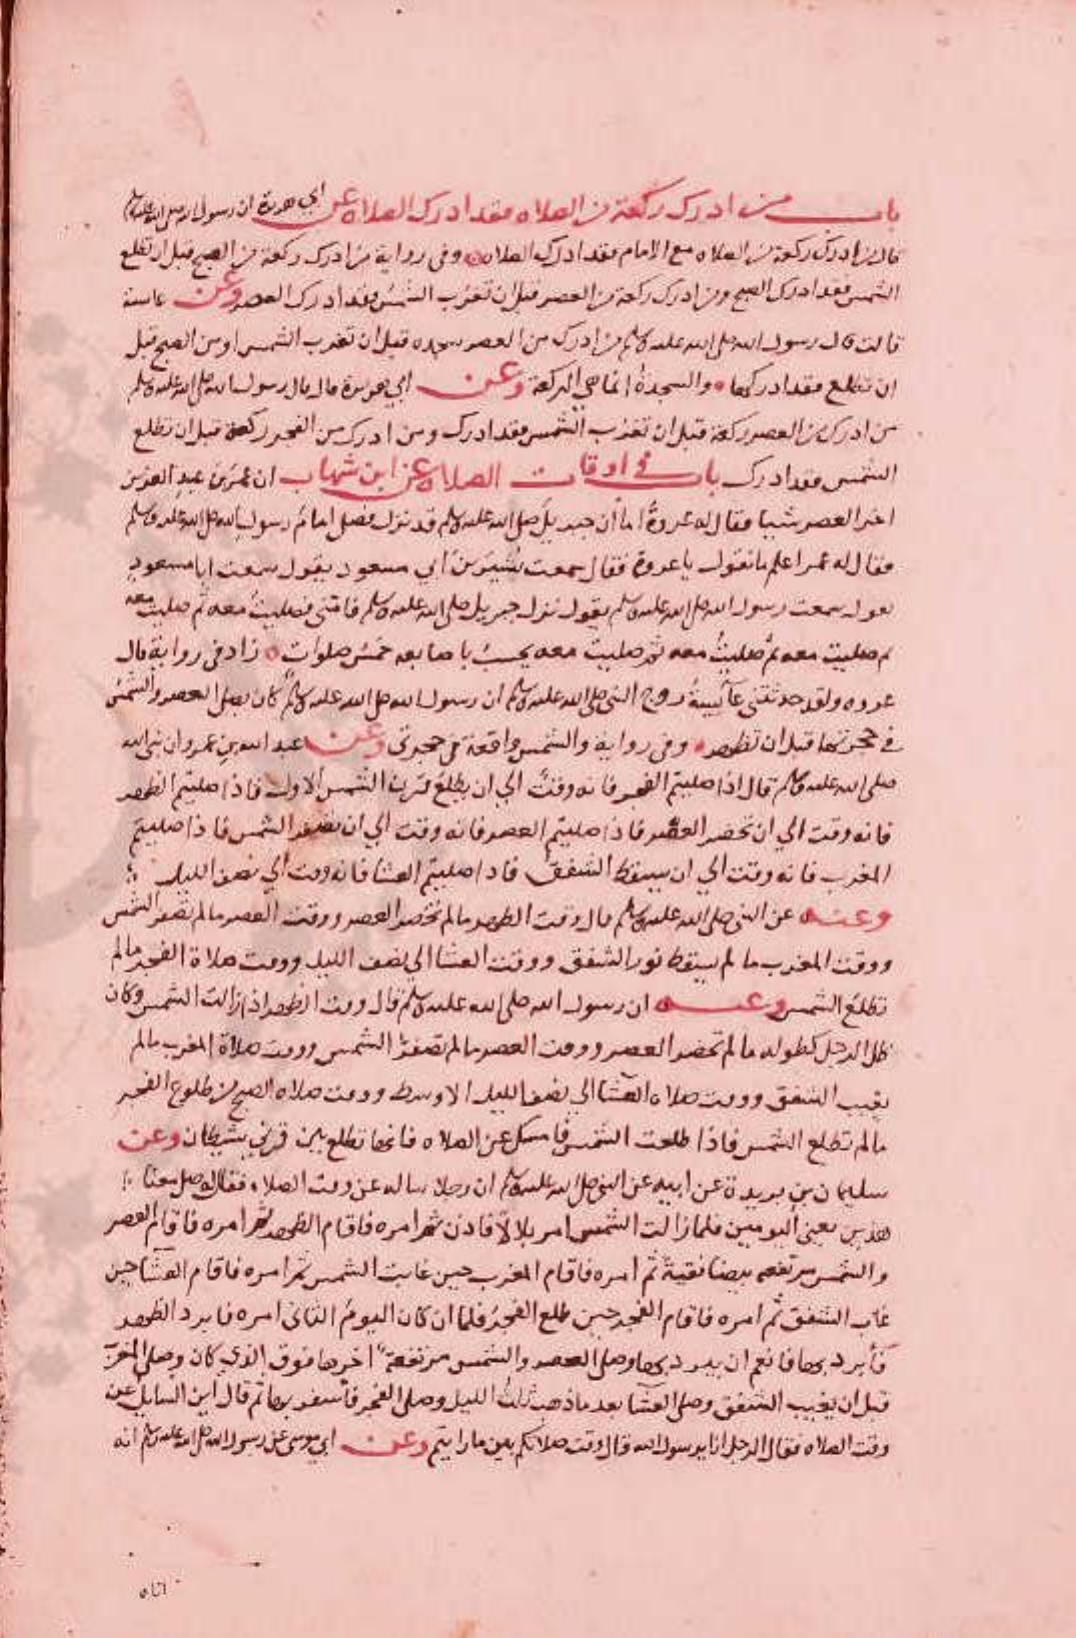 باب من ادرك ركعة من الصلاه فقد ادرك الصلاة عن ابي هريرة ان رسول الله صلى الله عليه وسلم
قال من ادرك ركعة من الصلاه مع الامام فقد ادرك الصلاه وفي رواية من ادرك ركعة من الصبح قبل ان تطلع
الشمس فقد ادرك الصبح ومن ادرك ركعة من العصر قبل ان تغرب الشمس فقد ادرك العصر وعن عائشة
قالت قال رسول الله صلى الله عليه وسلم من ادرك من العصر سجده قبل ان تغرب الشمس او من الصبح قبل
ان تطلع فقد ادركها والسجدة انما هي الركعة وعن ابي هريرة قال قال رسول الله صلى الله عليه وسلم
من ادرك من العصر ركعة قبل ان تغرب الشمس فقد ادرك ومن ادرك من الفجر ركعة قبل ان تطلع
الشمس فقد ادرك باب في اوقات الصلاة عن ابن شهاب ان عمر بن عبد العزيز
اخر العصر شيا فقال له عروة اما ان جبريل صلى الله عليه وسلم قد نزل فصلى امام رسول الله صلى الله عليه وسلم
فقال له عمر اعلم ما تقول يا عروة فقال سمعت بشير بن ابي مسعود يقول سمعت ابا مسعود
يقول سمعت رسول الله صلى الله عليه وسلم يقول نزل جبريل صلى الله عليه وسلم فامني فصليت معه ثم صليت معه
ثم صليت معه ثم صليت معه ثم صليت معه يحسب باصابعه خمس صلوات زاد في رواية قال
عروه ولقد حدثتني عائشة زوج النبي صلى الله عليه وسلم ان رسول الله صلى الله عليه وسلم كان يصلي العصر والشمس
في حجرتها قبل ان تظهر وفي رواية والشمس واقعة في حجرتي وعن عبد الله بن عمرو ان نبي الله
صلى الله عليه وسلم قال اذا صليتم الفجر فانه وقت الي ان يطلع قرن الشمس الاول فاذا صليتم الظهر
فانه وقت الي ان تحضر العصر فاذا صليتم العصر فانه وقت الي ان تصفر الشمس فاذا صليتم
المغرب فانه وقت الي ان يسقط الشفق فاذا صليتم العشا فانه وقت الي نصف الليل
وعنه عن النبي صلى الله عليه وسلم قال وقت الظهر مالم تحضر العصر ووقت العصر مالم تصفر الشمس
ووقت المغرب ما لم يسقط نور الشفق ووقت العشا الي نصف الليل ووقت صلاة الفجر مالم
تطلع الشمس وعنه ان رسول الله صلى الله عليه وسلم قال وقت الظهر اذا زالت الشمس وكان
ظل الرجل كطوله ما لم تحضر العصر ووقت العصر مالم تصفر الشمس ووقت صلاة المغرب مالم
يغيب الشفق ووقت صلاه العشا الي نصف الليل الاوسط ووقت صلاه الصبح من طلوع الفجر
مالم تطلع الشمس فاذا طلعت الشمس فامسك عن الصلاه فانها تطلع بين قرني شيطان وعن
سليمان بن بريدة عن ابيه عن النبي صلى الله عليه وسلم ان رجلا ساله عن وقت الصلاه فقال له صل معنا
هذين يعني اليومين فلما زالت الشمس امر بلالا فاذن ثم امره فاقام الظهر ثم امره فاقام العصر
والشمس مرتفعه بيضا نقية ثم امره فاقام المغرب حين غابت الشمس ثم امره فاقام العشا حين
غاب الشفق ثم امره فاقام الفجر حين طلع الفجر فلما ان كان اليوم الثاني امره فابرد الظهر
فأبرد بها فانعم ان يبرد بها وصلى العصر والشمس مرتفعة اخرها فوق الذي كان وصلى المغرب
قبل ان يغيب الشفق وصلى العشا بعد ماذهب ثلث الليل وصلى الفجر فأسفر بها ثم قال اين السايل عن
وقت الصلاه فقال الرجل انا يرسول الله قال وقت صلاتكم بين ما رايتم وعن ابي موسى عن رسول الله صلى الله عليه وسلم انه
اتاه